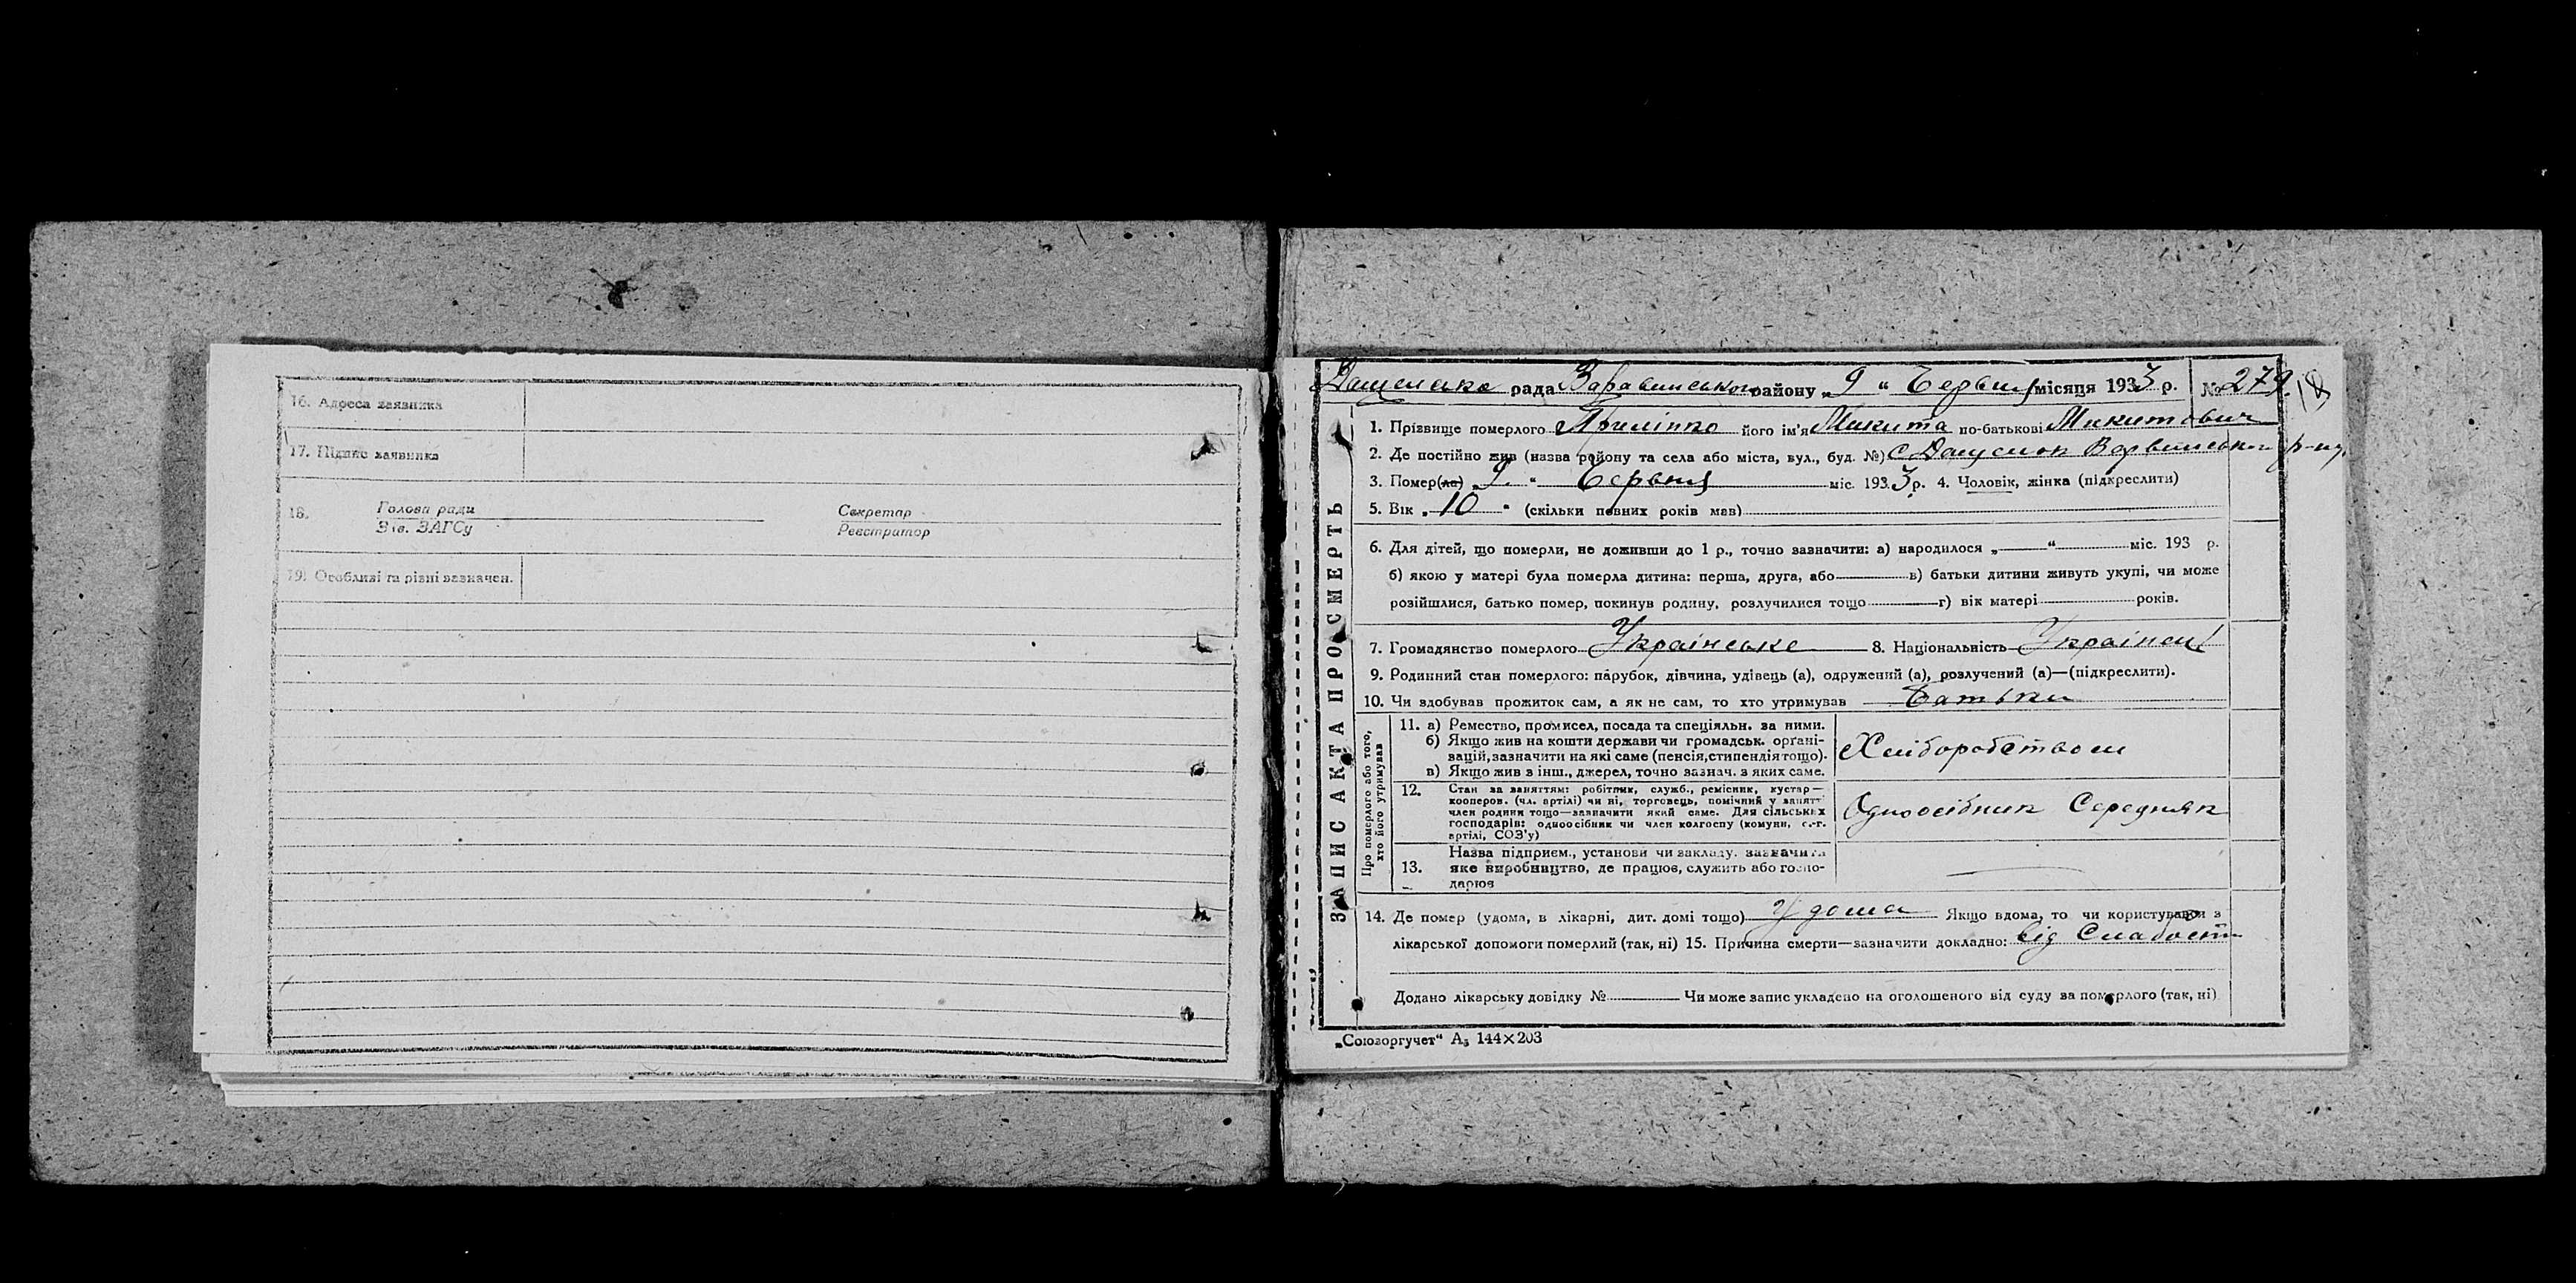 16. Адреса заявника
17. Підпис заявника
18. Голова ради Секретар
Зав. ЗАГСу Реєстратор
19. Особливі та різні зазначен.
ЗАПИС АКТА ПРО СМЕРТЬ
рада району „9“ Червня місяця 1933 р. № 279.
1. Прізвище померлого Приліпко його ім'я Микита по-батькові Микитович
2. Де постійно жив (назва району та села або міста, вул., буд. №) с Дащенки Варвинського р-ну.
3. Помер(ла) „9.“ Червня міс. 1933 р. 4. Чоловік, жінка (підкреслити)
5. Вік „10“ (скільки повних років мав)
6. Для дітей, що померли, не доживши до 1 р., точно зазначити: а) народилося „ “ міс. 193 р.
б) якою у матері була померла дитина: перша, друга, або в) батьки дитини живуть укупі, чи може
розійшлися, батько помер, покинув родину, розлучилися тощо г) вік матері років.
7. Громадянство померлого Українське 8. Національність
9. Родинний стан померлого: парубок, дівчина, удівець (а), одружений (а), розлучений (а)—(підкреслити).
10. Чи здобував прожиток сам, а як не сам, то хто утримував Батьки
Про померлого або того,
хто його утримував
11. а) Ремество, промисел, посада та спеціяльн. за ними.
б) Якщо жив на кошти держави чи громадськ. органі-
зацій, зазначити на які саме (пенсія, стипендія тощо).
в) Якщо жив з інш., джерел, точно зазнач. з яких саме.
Хліборобством
12. Стан за заняттям: робітник, служб., ремісник, кустар—
кооперов. (чл. артілі) чи ні, торговець, помічний у занят
член родини тощо—зазначити який саме. Для сільських
господарів: одноосібник чи член колгоспу (комуни, с.-г.
артілі, СОЗ'у)
Одноосібник Середняк
13. Назва підприєм., установи чи закладу. зазначити
яке виробництво, де працює, служить або госпо-
дарює
14. Де помер (удома, в лікарні, дит. домі тощо) У дома Якщо вдома, то чи користувався з
лікарської допомоги померлий (так, ні) 15. Причина смерти—зазначити докладно: Від Слабости
Додано лікарську довідку № Чи може запис укладено на оголошеного від суду за померлого (так, ні)
„Союзоргучет“ А₅ 144×203